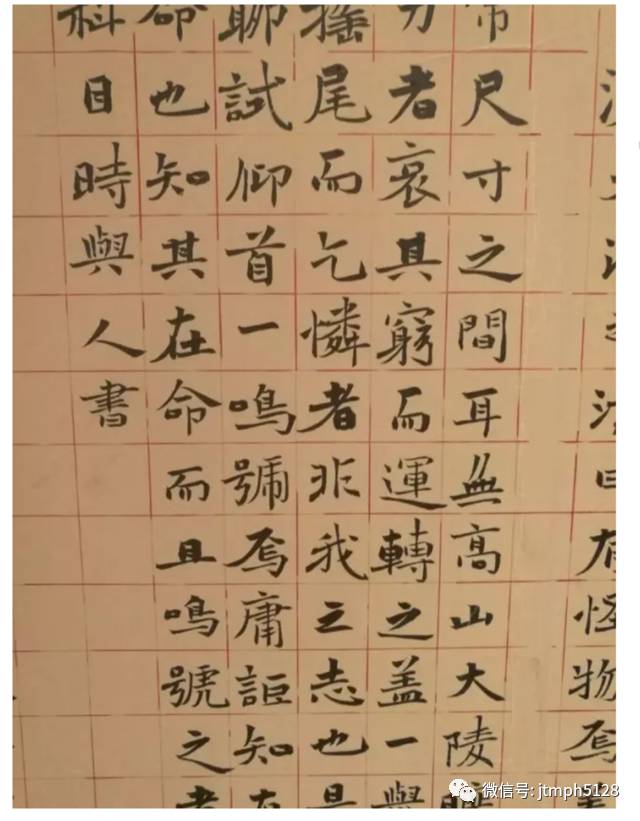 曰有怪物焉
常尺寸之間耳無高山大陵
力者哀其窮而運轉之盖一與
搖尾而乞憐者非我之志也是
聊試仰首一鳴號焉庸詎知有
命也知其在命而且鳴號之者
科目時與人書
微信号: jtmph5128